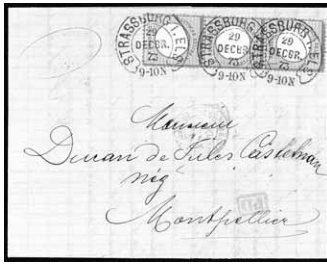 STRASSBURG I. ELS.
29
DECBR.
73
9-10N
STRASSBURG I. ELS.
29
DECBR.
73
9-10N
STRASSBURG I. ELS.
29
DECBR.
73
9-10N
Monsieur
de Jules Castelnau
nég
Montpellier
PD